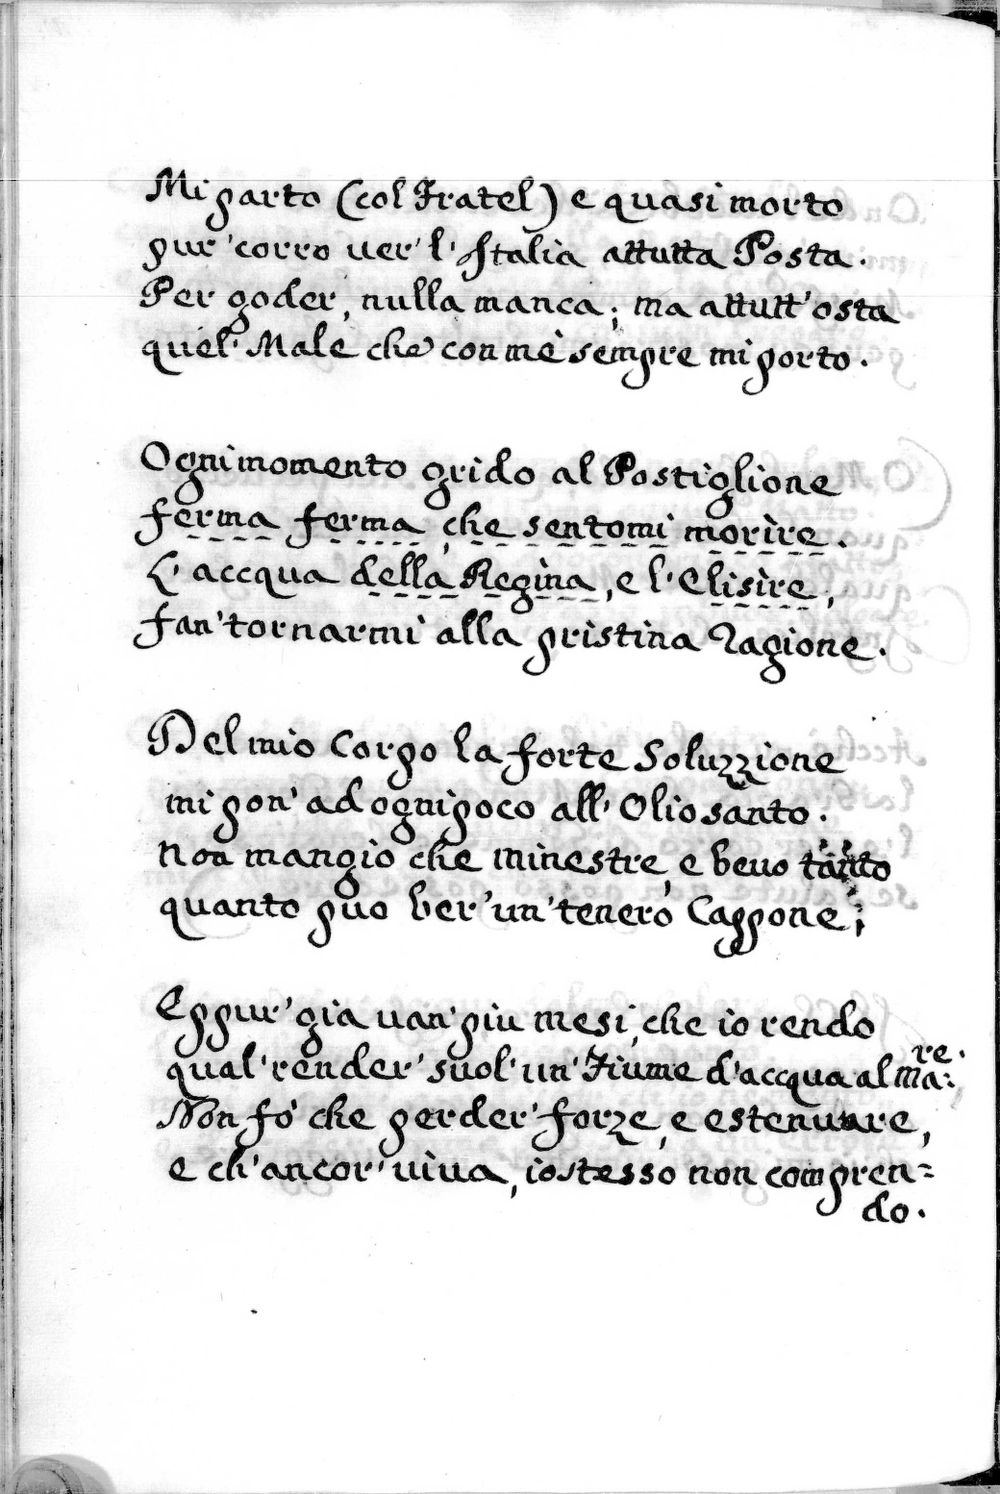 Mi parto (col Fratel) e quasi morto
pur' corro ver' l'Italia attutta Posta.
Per goder, nulla manca; ma attutt'osta
quel' Male che con mè sempre mi porto.
Ogni momento grido al Postiglione
ferma ferma, che sentomi morìre.
L'accqua della Regìna, e l'Elisìre,
fan' tornarmi alla pristina ragione.
Del mio Corpo la forte Soluzzione
mi pon' ad ogni poco all' Olio santo.
Non mangio che minestre, e bevo tanto
quanto puo ber' un' tenero Cappone;
Eppur' già van' piu mesi, che io rendo
qual' render' suol' un' Fiume d'accqua al mare.
Non fò che perder' forze, e estenuare,
e ch'ancor' viva, io stesso non compren=
do.